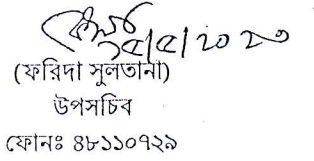 ১৫/৫/২০২০
(ফরিদা সুলতানা)
উপসচিব
ফোনঃ ৪৮১১০৭২৯